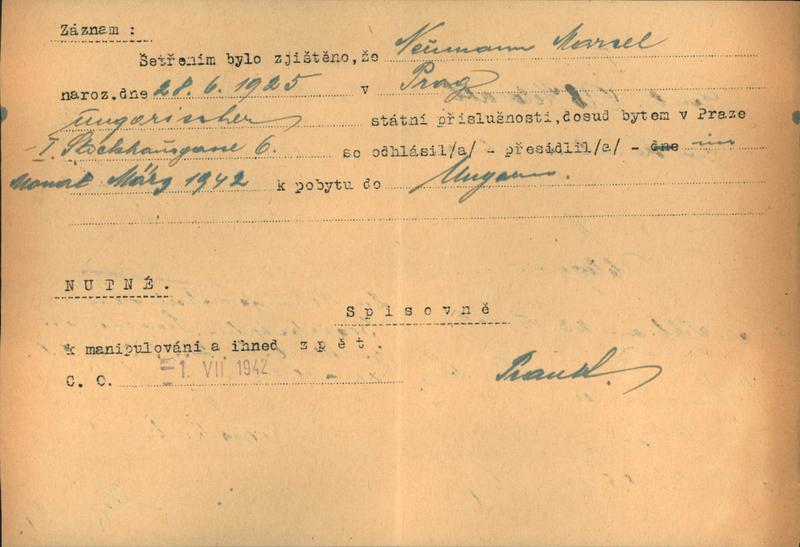 Záznam :
Šetřením bylo zjištěno, že Neumann Marcel
naroz. dne 28. 6. 1925 v Prag
ungarischer státní příslušnosti, dosud bytem v Praze
I. Stockhausgasse 6. se odhlásil/a/ - přesídlil/a/ - dne im
Monat März 1942 k pobytu do Ungarn.
NUTNÉ.
Spisovně
k manipulování a ihned zpět.
C. O. 1. VII 1942